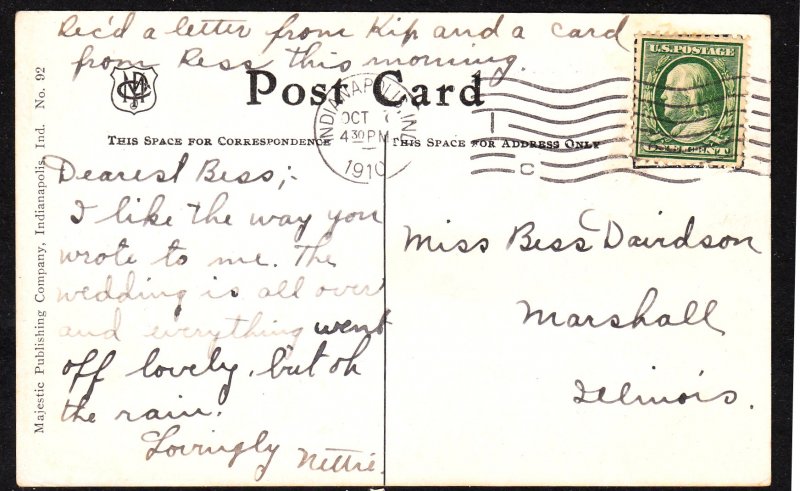 Rec'd a letter from Kip and a card
from Ress this morning.
Post Card
THIS SPACE FOR CORRESPONDENCE
THIS SPACE FOR ADDRESS ONLY
INDIANAPOLIS, IND.
OCT
4 30 PM
1910
U.S. POSTAGE
Dearest Bess;-
I like the way you
wrote to me. The
wedding is all over
and everything went
off lovely, but oh
the rain.
Lovingly Nettie.
Miss Bess Davidson
Marshall
Illinois.
Majestic Publishing Company, Indianapolis, Ind. No. 92